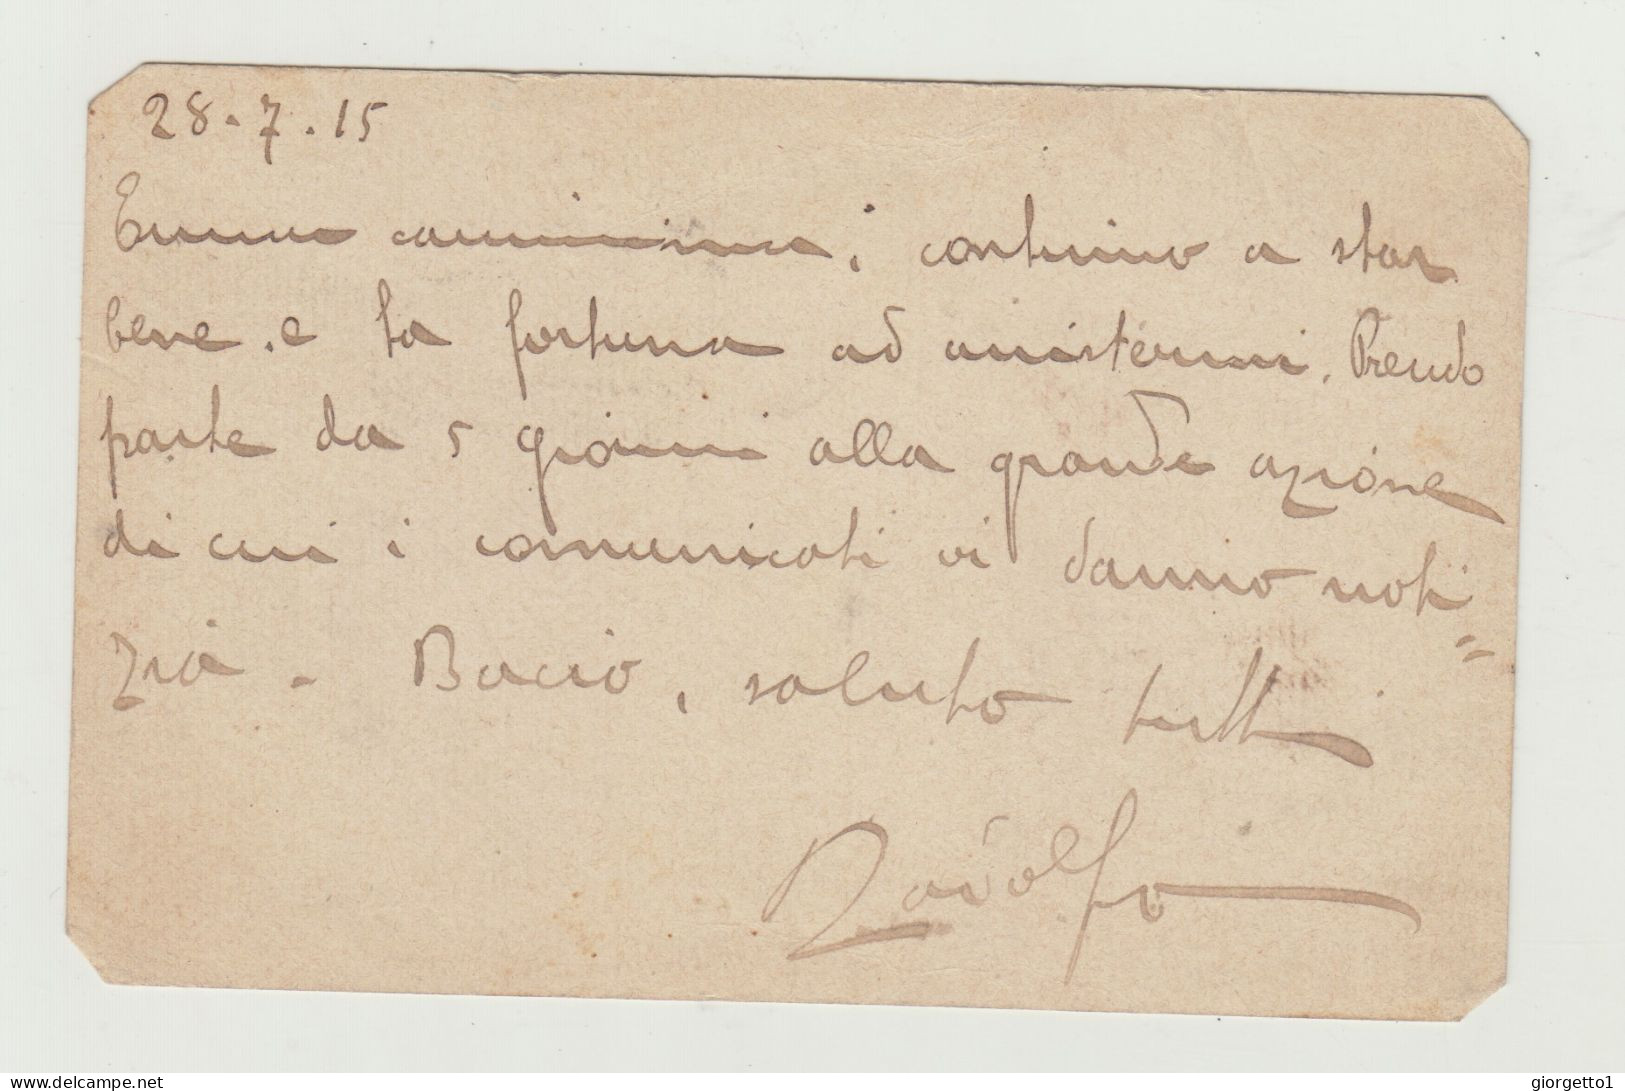 28.7.15
Emma carissima, continuo a star
bene. e la fortuna ad assistermi. Prendo
parte da 5 giorni alla grande azione
di cui i comunicati vi danno noti=
zia. Bacio, saluto tutti
Rodolfo
www.delcampe.net
giorgetto1